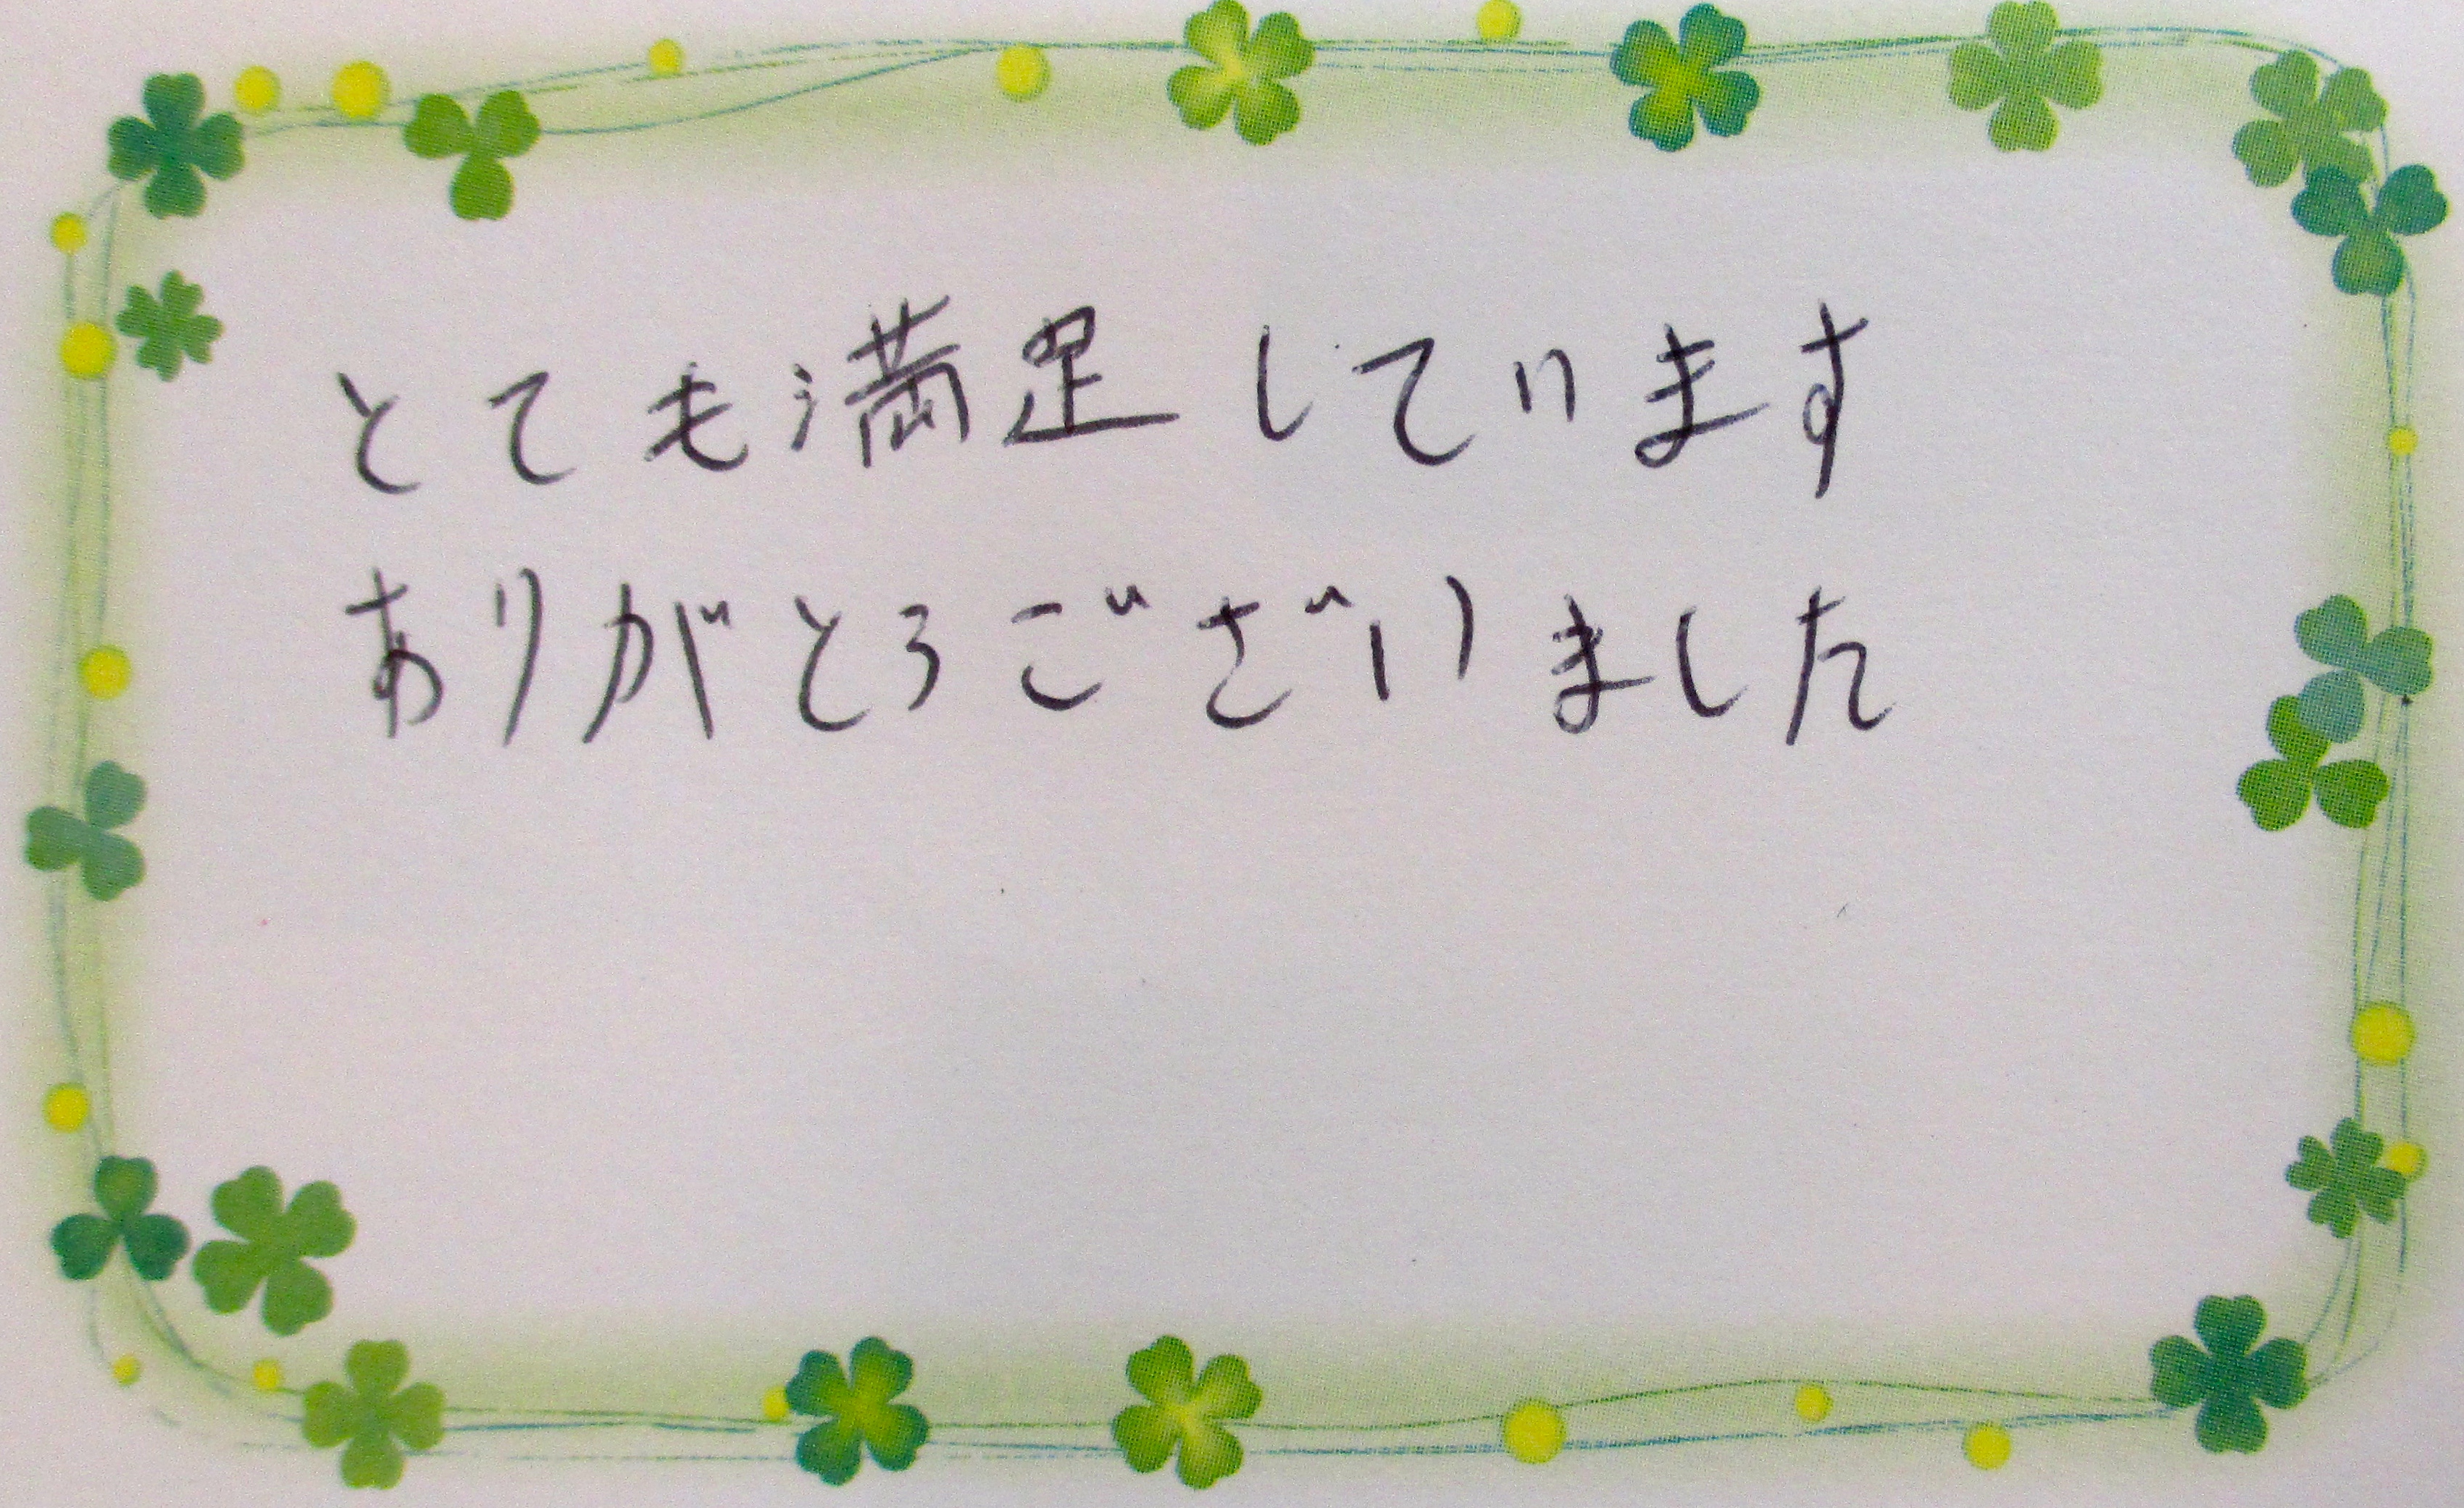 とても満足しています
ありがとうございました